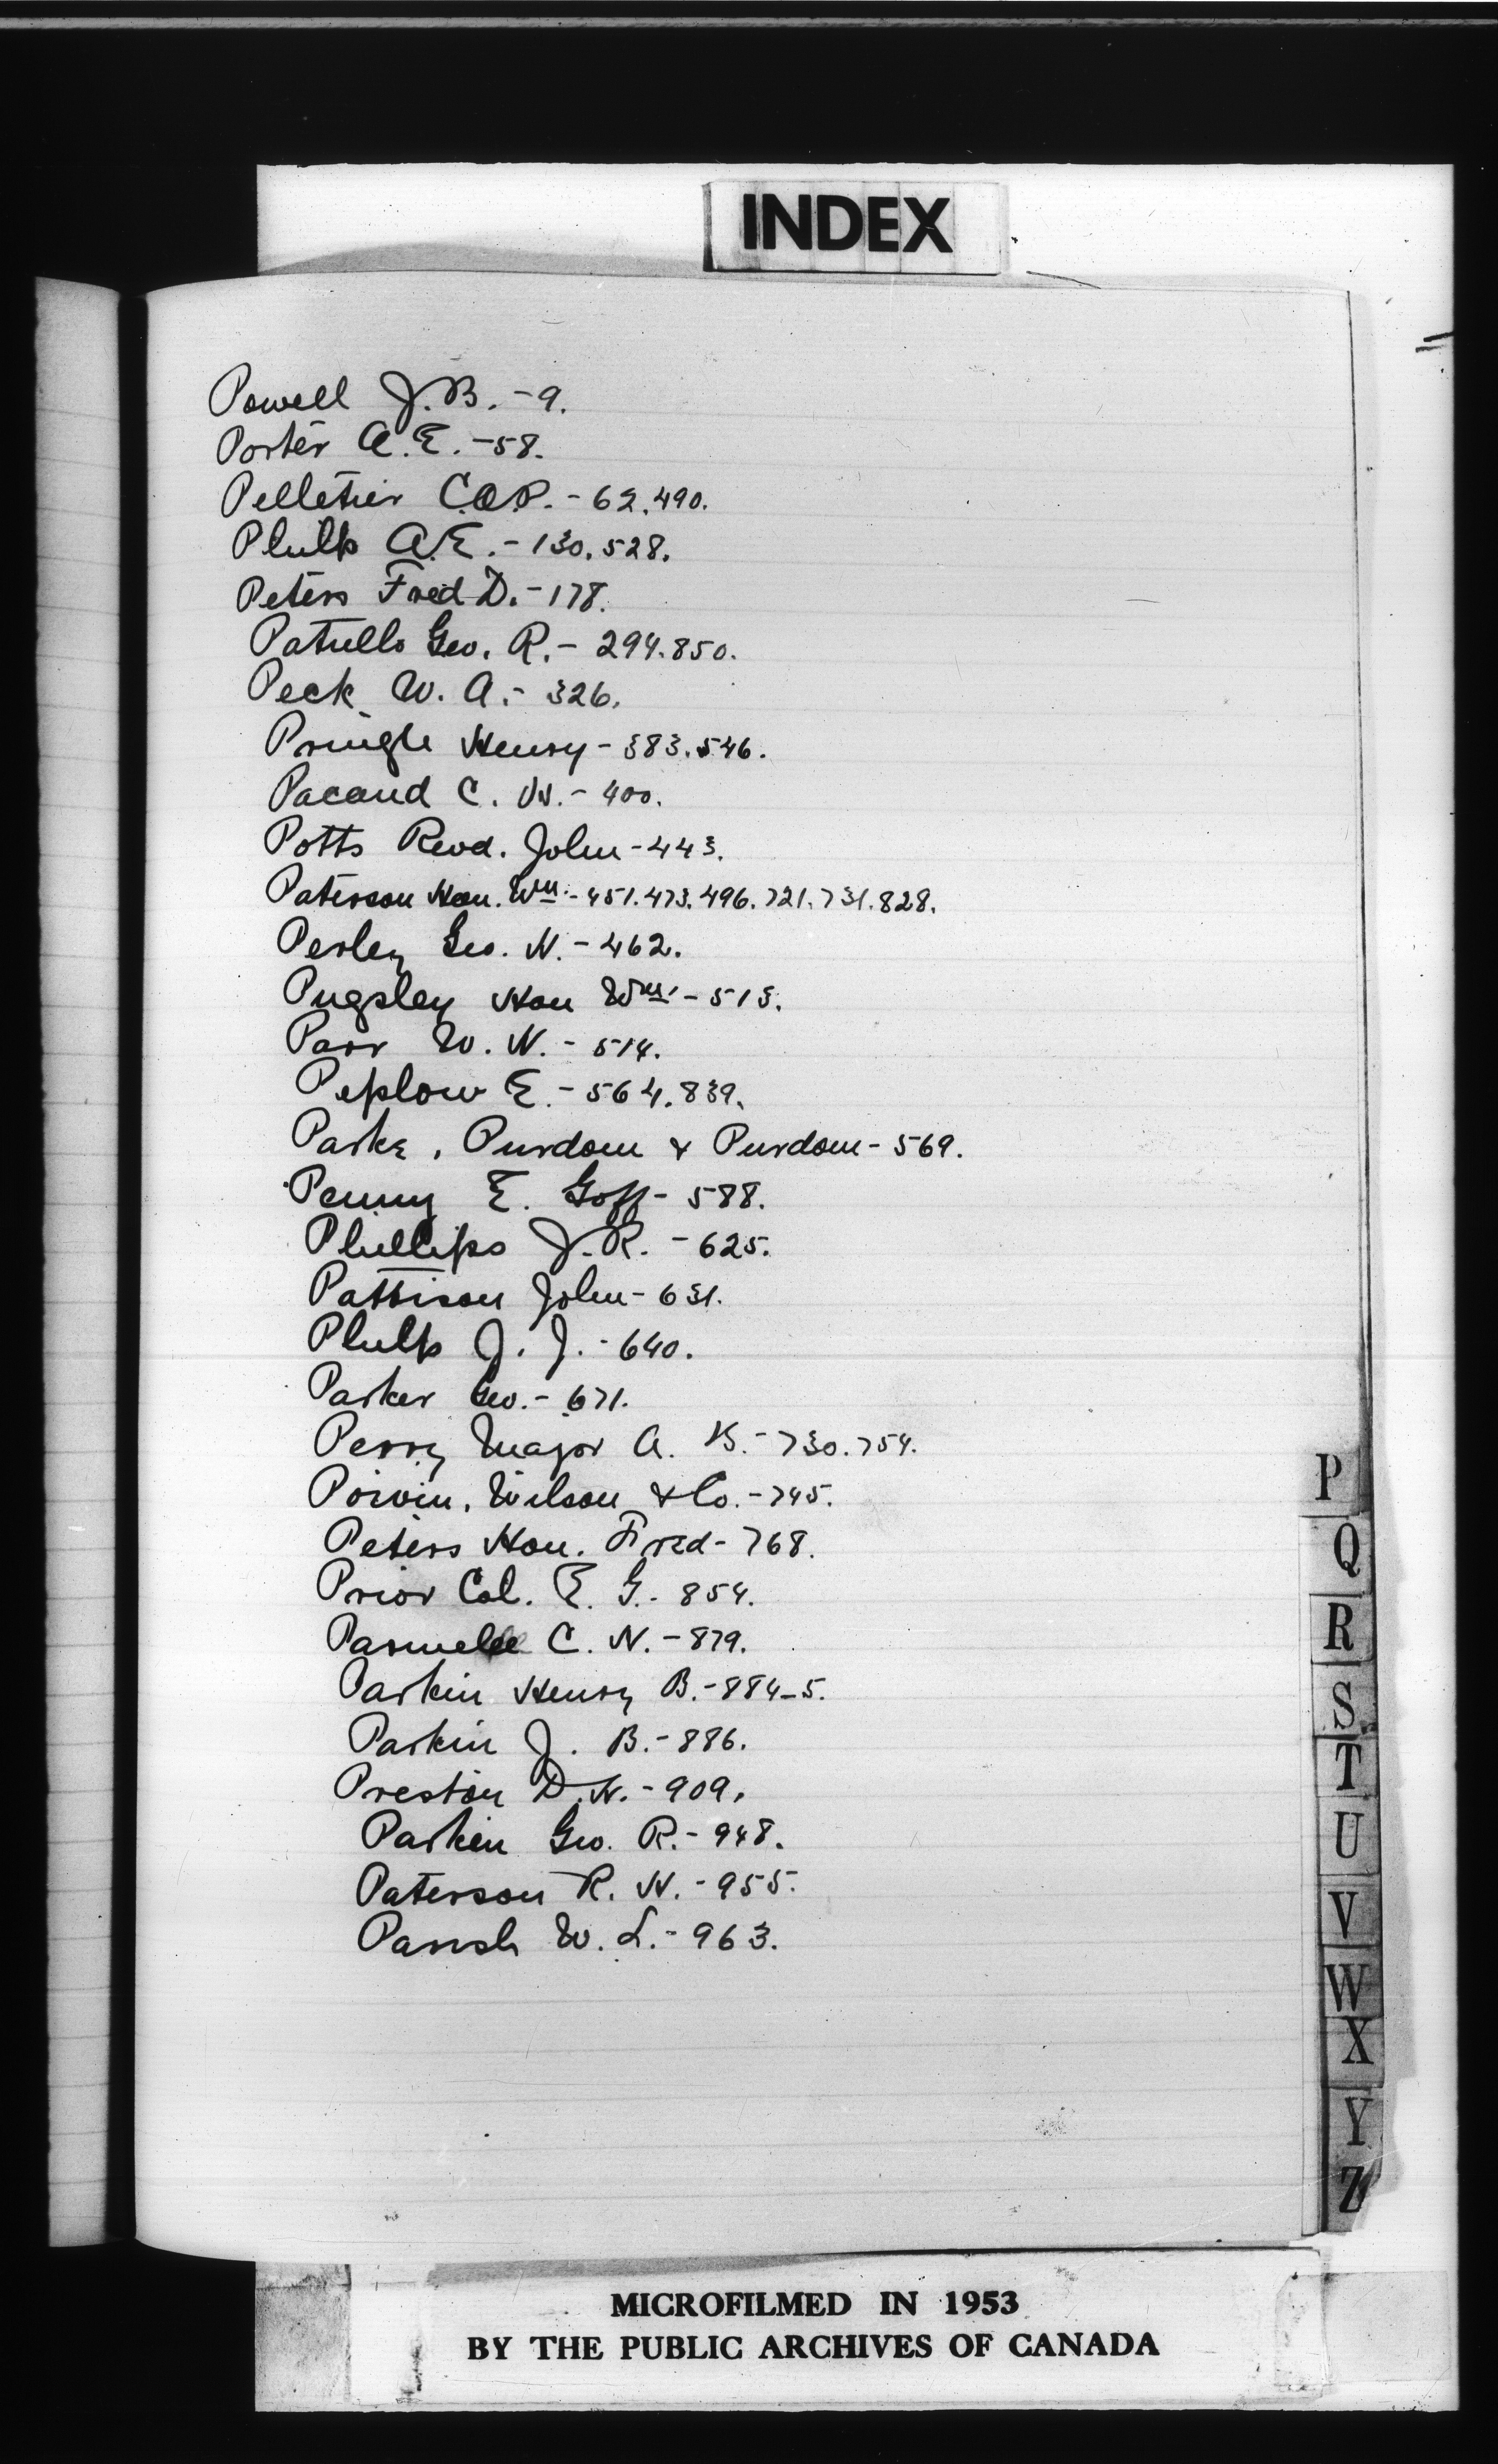 INDEX
Powell J.B. - 9.
Porter A.E. - 58.
Pelletier C.A.P. - 62.490.
Philp A.E. - 130.528.
Peters Fred D. - 178.
Patullo Geo. R. - 294.850.
Peck W. A. - 326.
Pringle Henry - 383.546.
Pacaud C. W. - 400.
Potts Revd. John - 443.
Paterson Hon. Wm. - 451.473.496.721.731.828.
Perley Geo. H. - 462.
Pugsley Hon Wm. - 513.
Parr W. H. - 514.
Peplow E. - 564.839.
Parke, Purdom & Purdom - 569.
Penny E. Goff - 588.
Phillips J.R. - 625.
Pattison John - 631.
Philp J. J. - 640.
Parker Geo. - 671.
Perry Major A. B. - 730.754.
Poivin, Wilson & Co. - 745.
Peters Hon. Fred - 768.
Prior Col. E. G. - 854.
Parmelee C. H. - 879.
Parkin Henry B. - 884-5.
Parkin J. B. - 886.
Preston D.H. - 909.
Parkin Geo. R. - 948.
Paterson R. W. - 955.
Parrish W. L. - 963.
P
Q
R
S
T
U
V
W
X
Y
Z
MICROFILMED IN 1953
BY THE PUBLIC ARCHIVES OF CANADA